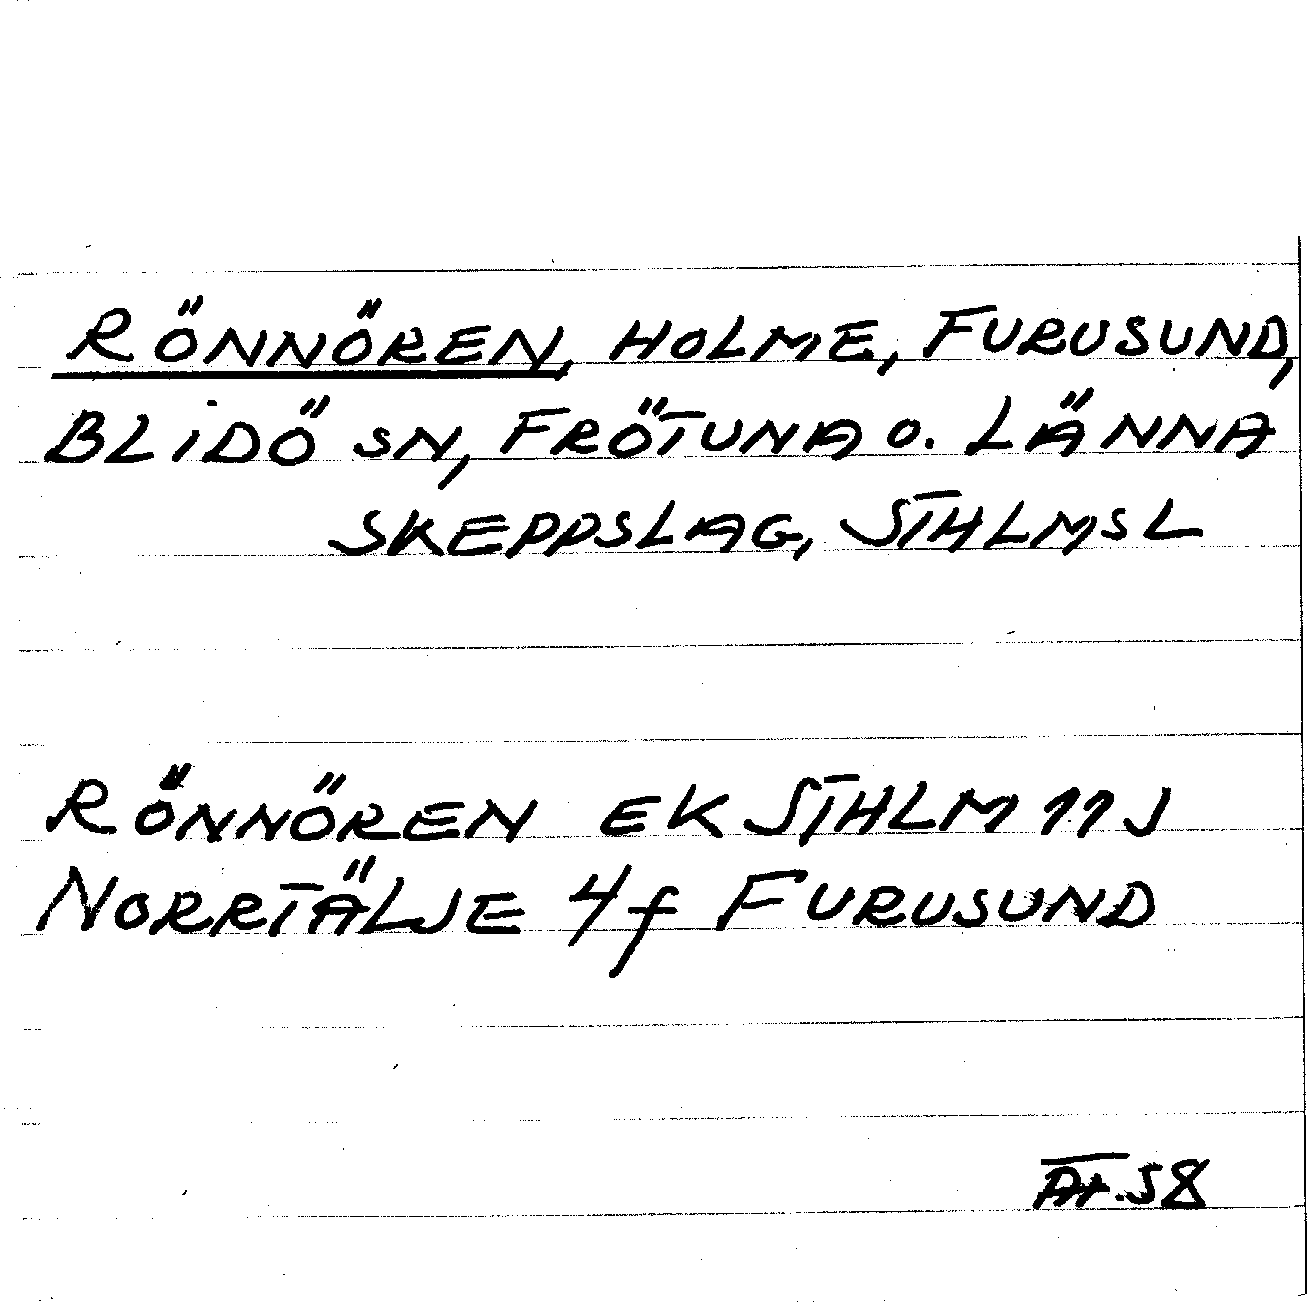 RÖNNÖREN, HOLME, FURUSUND,
BLIDÖ SN, FRÖTUNA O. LÄNNA
SKEPPSLAG, STHLMS L
RÖNNÖREN EK STHLM 11 J
NORRTÄLJE 4f FURUSUND
58